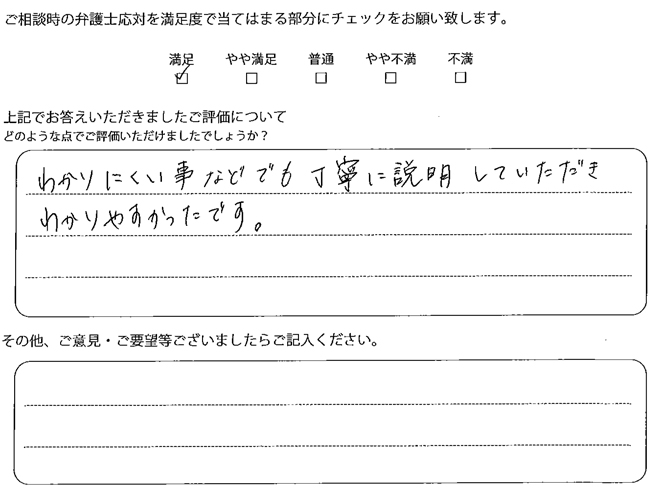 ご相談時の弁護士応対を満足度で当てはまる部分にチェックをお願い致します。
満足 やや満足 普通 やや不満 不満
上記でお答えいただきましたご評価について
どのような点でご評価いただけましたでしょうか？
わかりにくい事などでも丁寧に説明していただき
わかりやすかったです。
その他、ご意見・ご要望等ございましたらご記入ください。